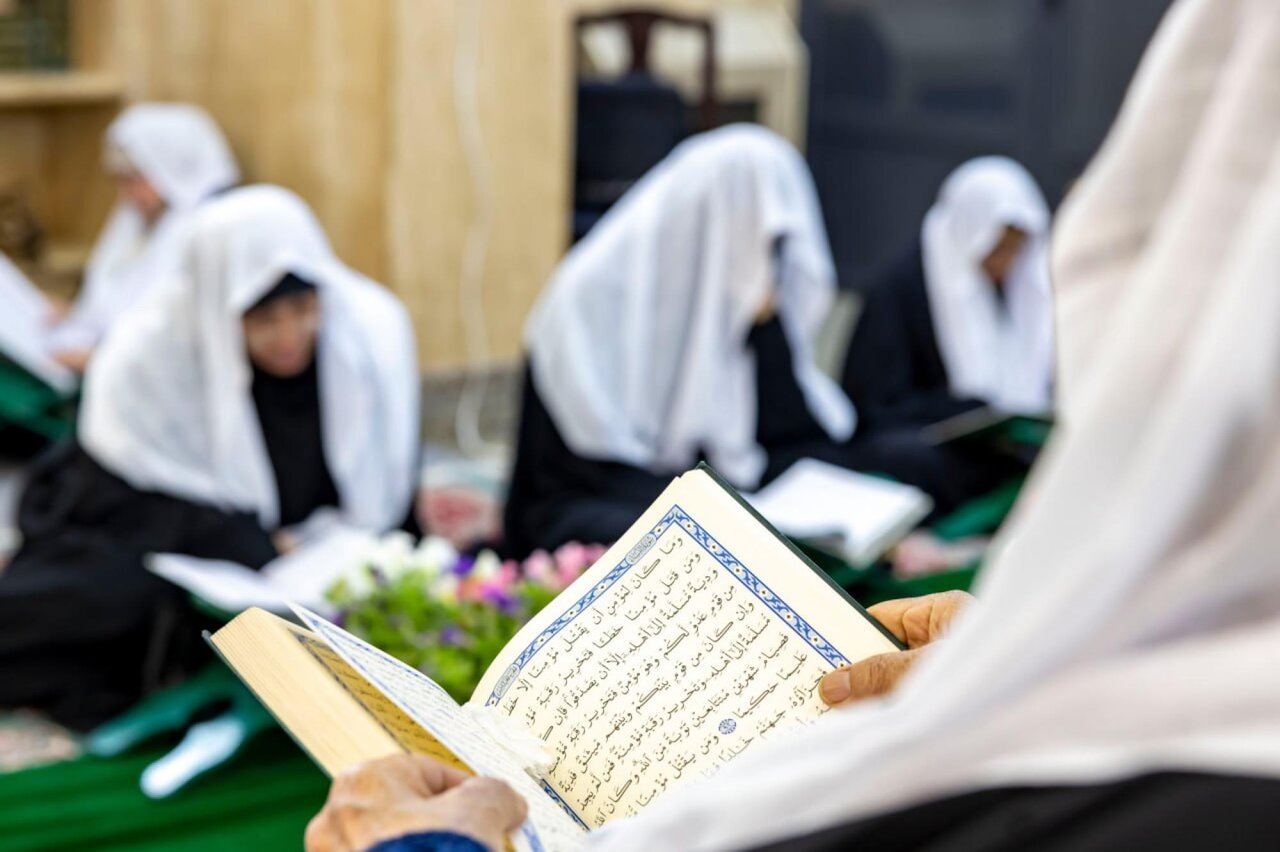 وَمَا كَانَ لِمُؤْمِنٍ أَنْ يَقْتُلَ مُؤْمِنًا إِلَّا
وَمَنْ قَتَلَ مُؤْمِنًا خَطَـًٔا فَتَحْرِيرُ رَقَبَةٍ
وَدِيَةٌ مُسَلَّمَةٌ إِلَىٰ أَهْلِهِ إِلَّا أَنْ يَصَّدَّقُوا فَإِنْ
مِنْ قَوْمٍ عَدُوٍّ لَكُمْ وَهُوَ مُؤْمِنٌ فَتَحْرِيرُ رَقَبَةٍ
وَإِنْ كَانَ مِنْ قَوْمٍ بَيْنَكُمْ وَبَيْنَهُمْ مِيثَاقٌ فَدِيَةٌ
مُسَلَّمَةٌ إِلَىٰ أَهْلِهِ وَتَحْرِيرُ رَقَبَةٍ مُؤْمِنَةٍ فَمَنْ لَمْ يَجِدْ
فَصِيَامُ شَهْرَيْنِ مُتَتَابِعَيْنِ تَوْبَةً مِنَ اللَّهِ وَكَانَ اللَّهُ
عَلِيمًا حَكِيمًا وَمَنْ يَقْتُلْ مُؤْمِنًا
فَجَزَاؤُهُ جَهَنَّمُ خَالِدًا